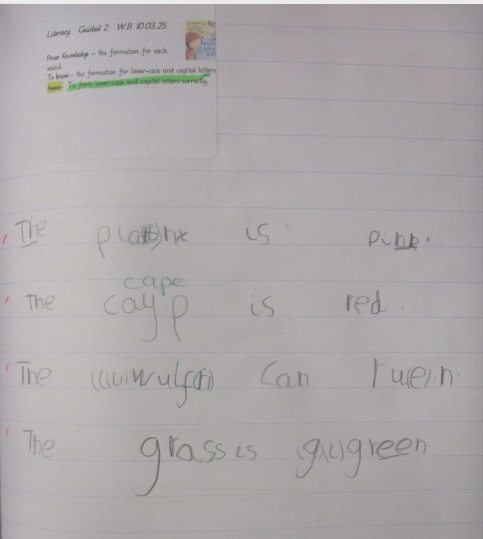 Literacy Guided 2 W.B. 10.03.25
Prior Knowledge – the formation for each
word.
To know - the formation for lower-case and capital letters
Aim- To form lower-case and capital letters correctly
The is pink.
cape
the cayp is red.
The can
The grass is green.